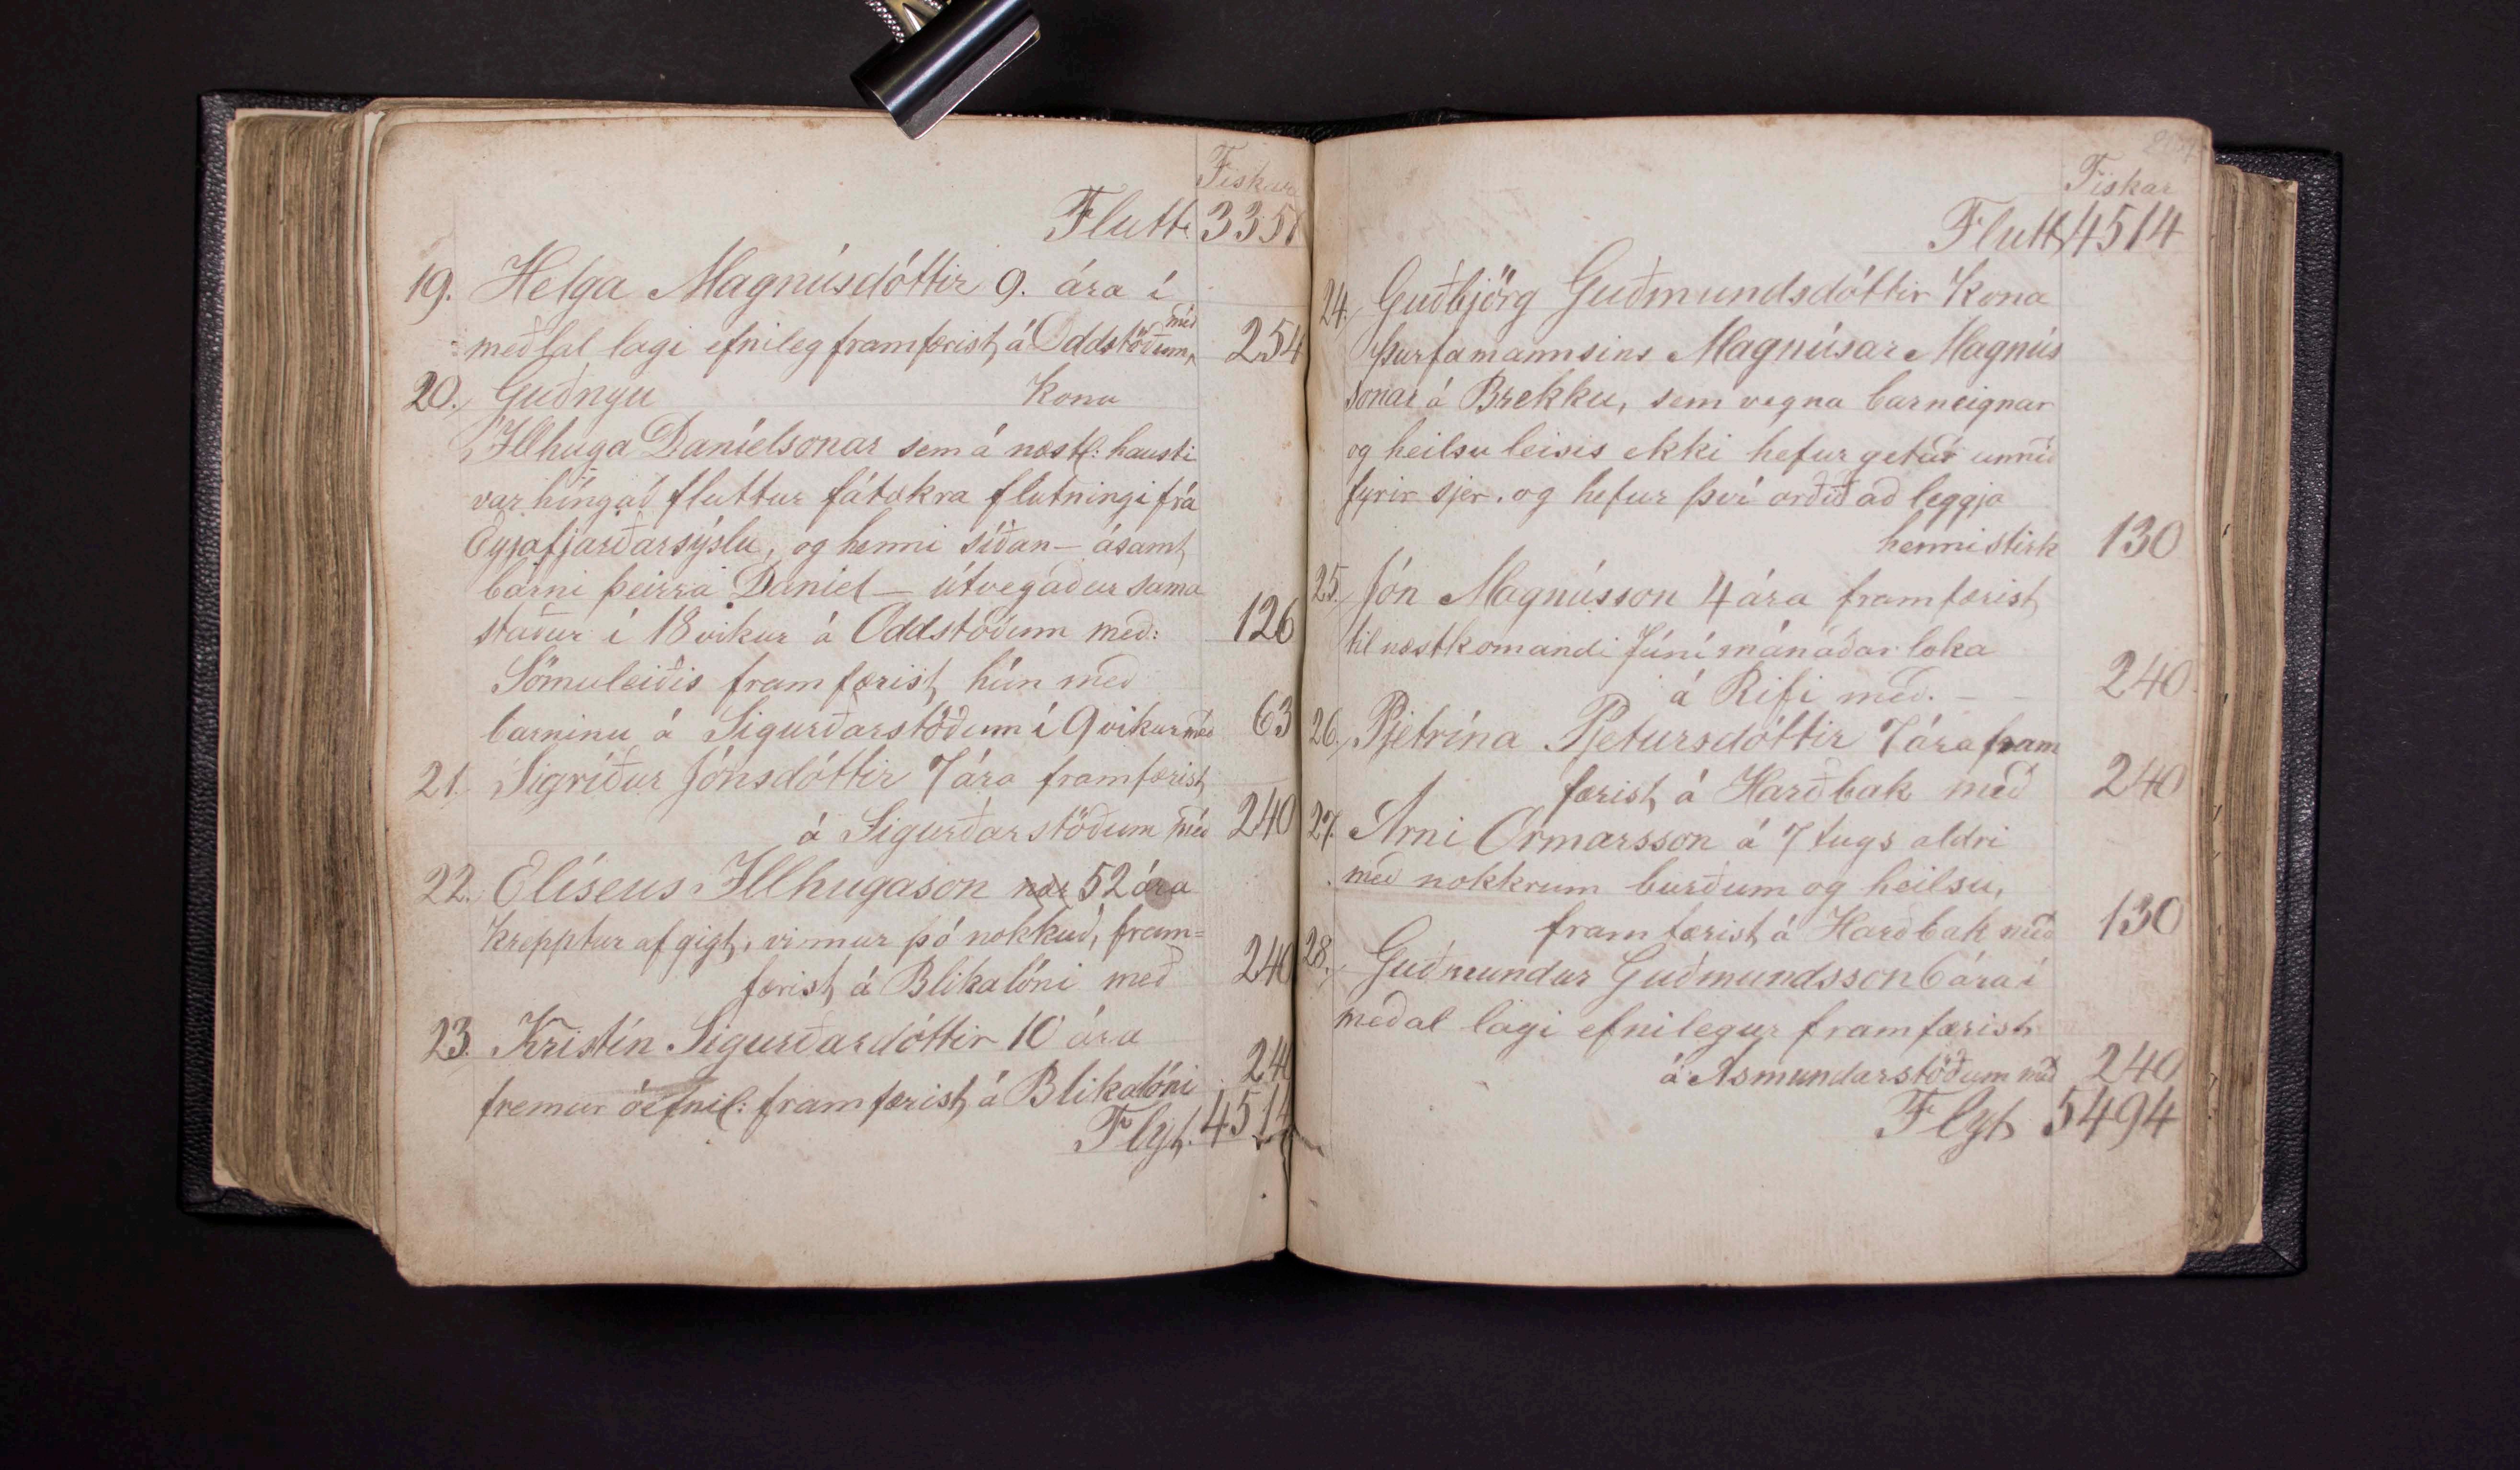 Fiskar
Flutt. 3351
19. Helga Magnúsdóttir 9. ára í
meðlal lagi efnileg framfærist á Oddstöðum með 254
20. Guðnyu Kona
Illhuga Daníelsonar sem á næstl: hausti
var híngað fluttur fátækra flutningi frá
Eyjafjarðarsýslu, og henni síðan – ásamt
barni þeirra Daníel – útvegaður sama
staður í 18 vikur á Oddstöðum með: 126
Sömuleiðis framfærist hún með
barninu á Sigurðarstöðum í 9 vikur með 63
21. Sigríður Jónsdóttir 7 ára framfærist
á Sigurðarstöðum með 240
22. Elíseus Illhugason nær 52 ára
krepptur af gigt, vinnur þó nokkuð, fram=
færist á Blikalóni með 240
23. Kristín Sigurðardóttir 10 ára
fremur óefnil: framfærist á Blikalóni 240
Flyt. 4514
Fiskar
Flutt 4514
24. Guðbjörg Guðmundsdóttir Kona
þurfamannsins Magnúsar Magnús
sonar á Brekku, sem vegna barneignar
og heilsu leisis ekki hefur getað unnið
fyrir sjer. og hefur því orðið að leggja
henni stirk 130
25. Jón Magnússon 4 ára framfærist
til næstkomandi Júní mánaðar loka
á Rifi með. – – 240
26. Pjetrína Pjetursdóttir 7 ára fram
færist á Harðbak með 240
27. Arni Ormarsson á 7 tugs aldri
með nokkrum burðum og heilsu,
framfærist á Harðbak með 130
28. Guðmundur Guðmundsson 6 ára í
meðal lagi efnilegur framfærist
á Asmundarstöðum með 240
Flyt 5494